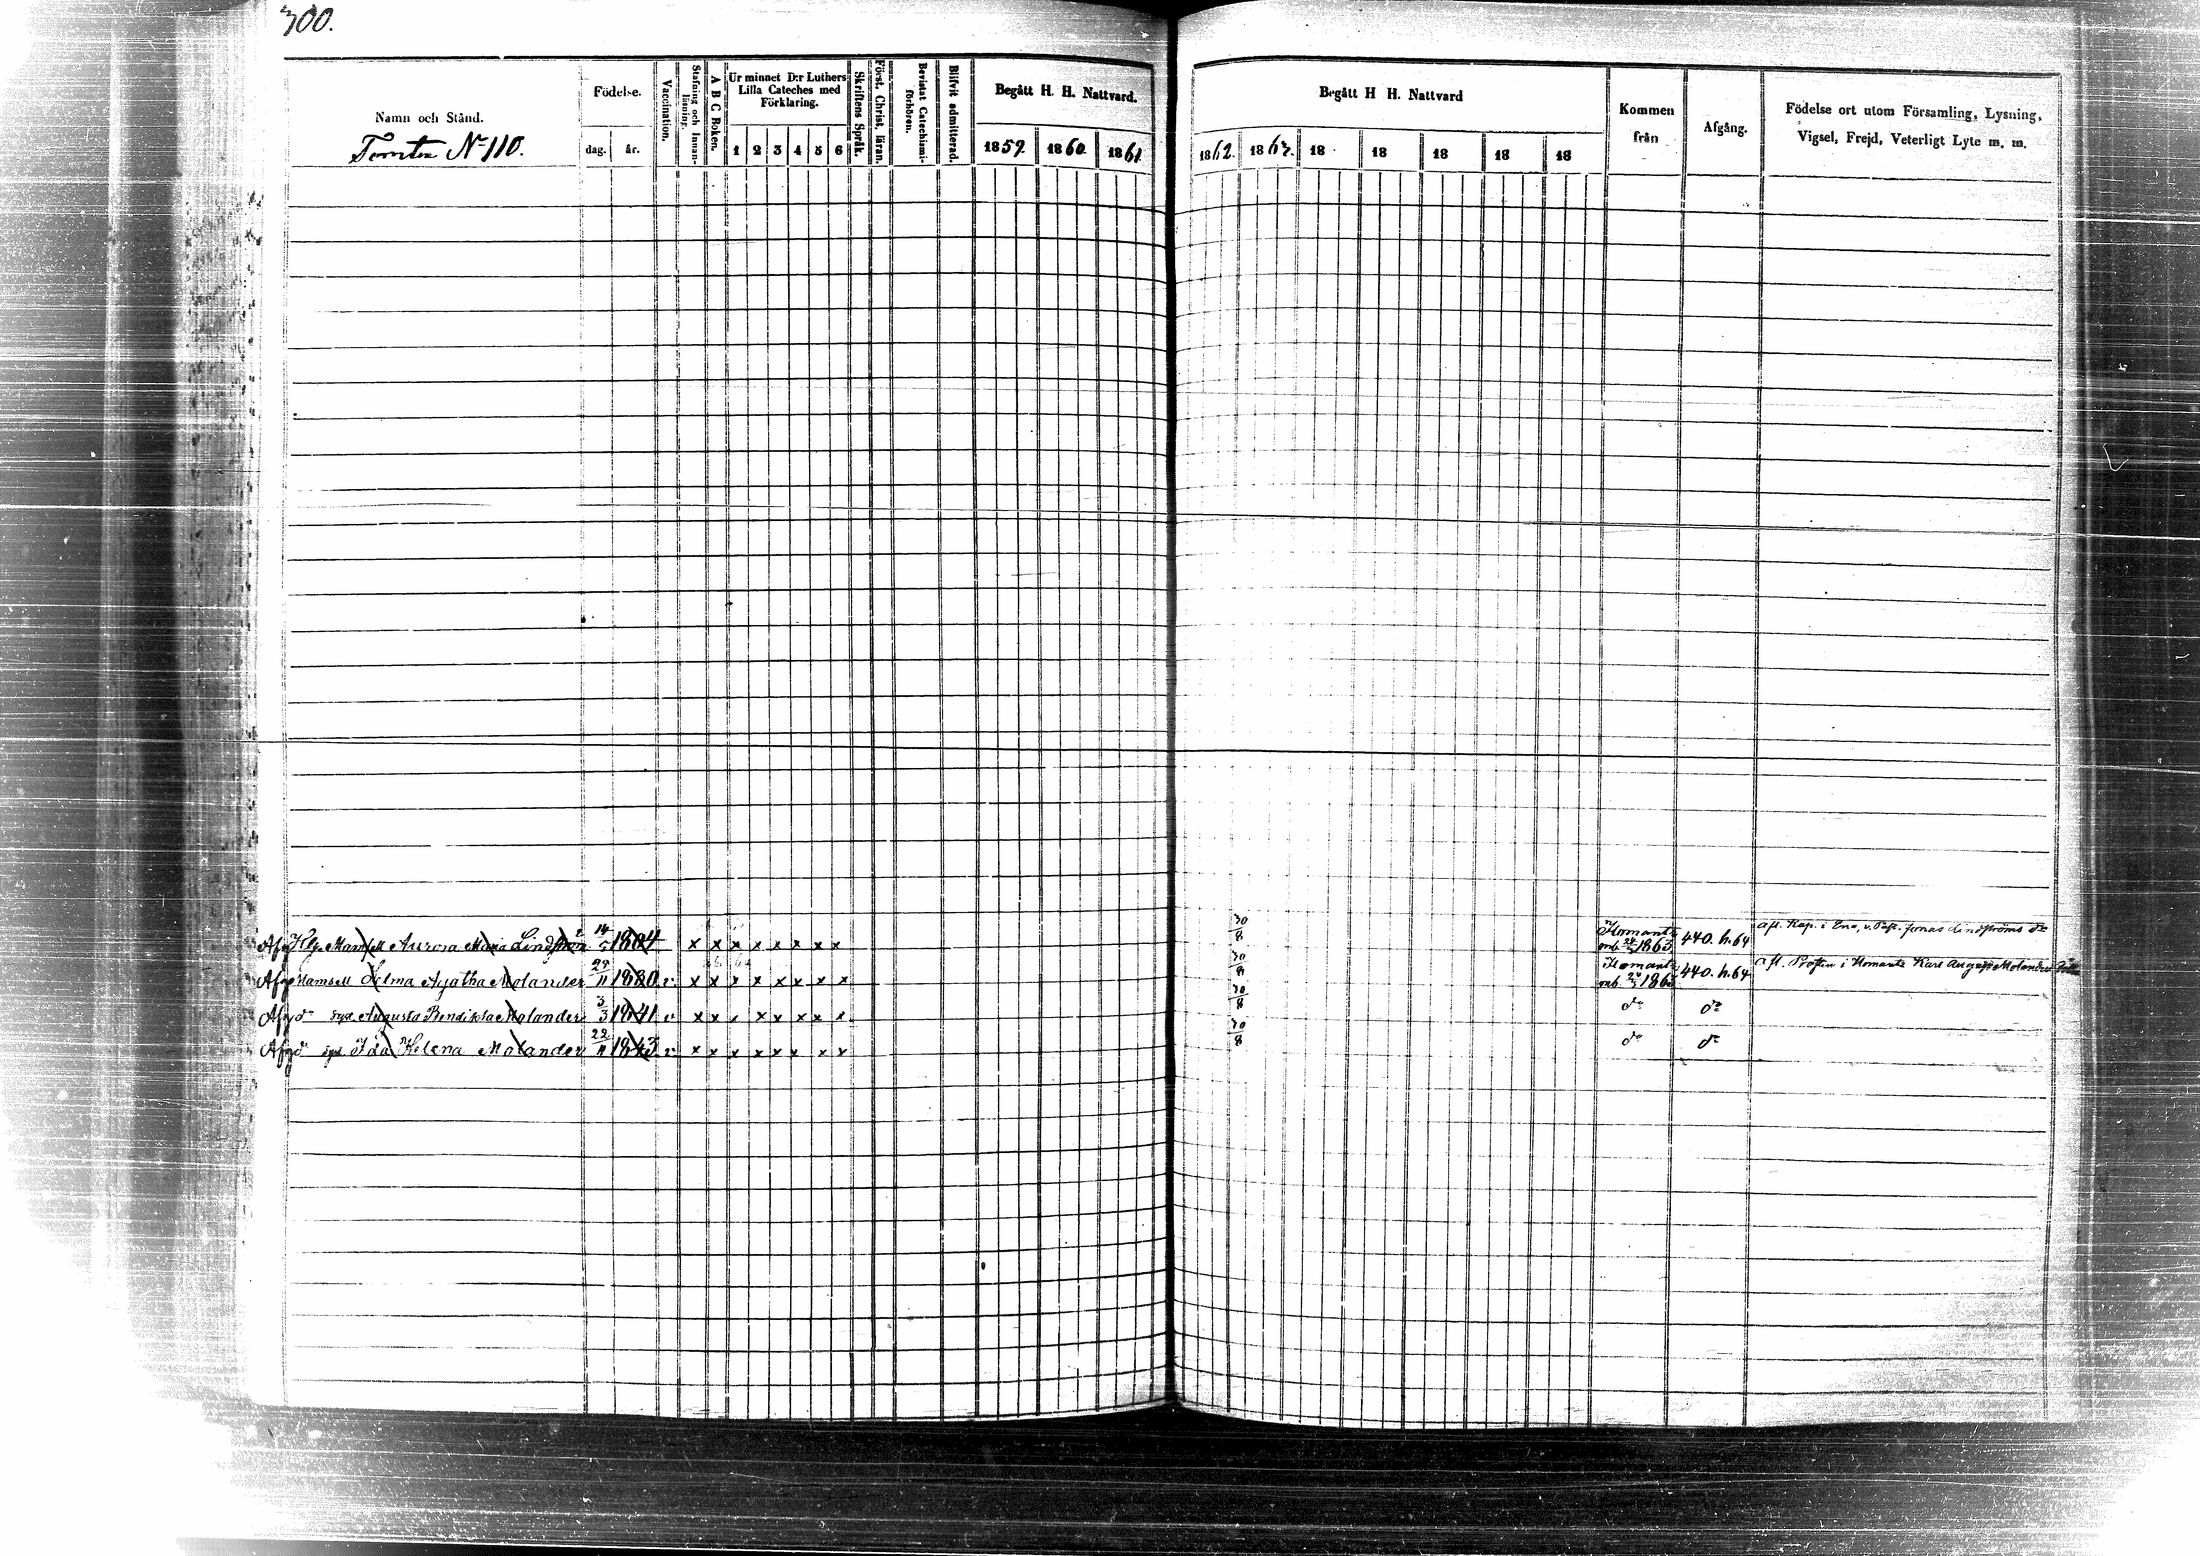 300.
Namn och Stånd.
Tomten No 110.
Födelse.
dag. år.
Vaccination.
Stafning och Innanläsning.
A B C Boken.
Ur minnet D:r Luthers Lilla Cateches med Förklaring.
1 2 3 4 5 6
Skriftens Språk.
Först. Christ. läran.
Bevistat Catechismiförhören.
Blifvit admitterad.
Begått H. H. Nattvard.
1859. 1860. 1861.
Begått H H. Nattvard
1862. 1863. 18 18 18 18 18
Kommen från
Afgång.
Födelse ort utom Församling, Lysning, Vigsel, Frejd, Veterligt Lyte m. m.
Mamsell Aurora Maria Lindström 14/5 1804 x x x x x x x x 30/8 Ilomants 1863 440. h. 64 afl. Kap. i Eno, v. Past. Jonas Lindströms dr
Mamsell Selma Agatha Molander 1830 v x x x x x x x x 30/8 Ilomants 1863 440. h. 64 afl. Prosten i Ilomants Karl August Molanders
do Augusta Bendikta Molander 3/3 1841 v x x x x x x x x 30/8 do do
do Ida Helena Molander 22/11 1843 v x x x x x x x x 30/8 do do